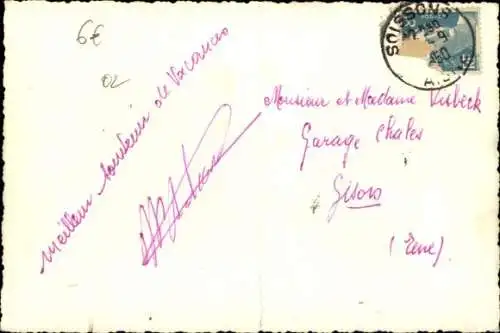 6€
02
meilleur souvenir de Vacances
SOISSONS
-9
Monsieur et Madame
Garage Chales
Gisors
(Eure)